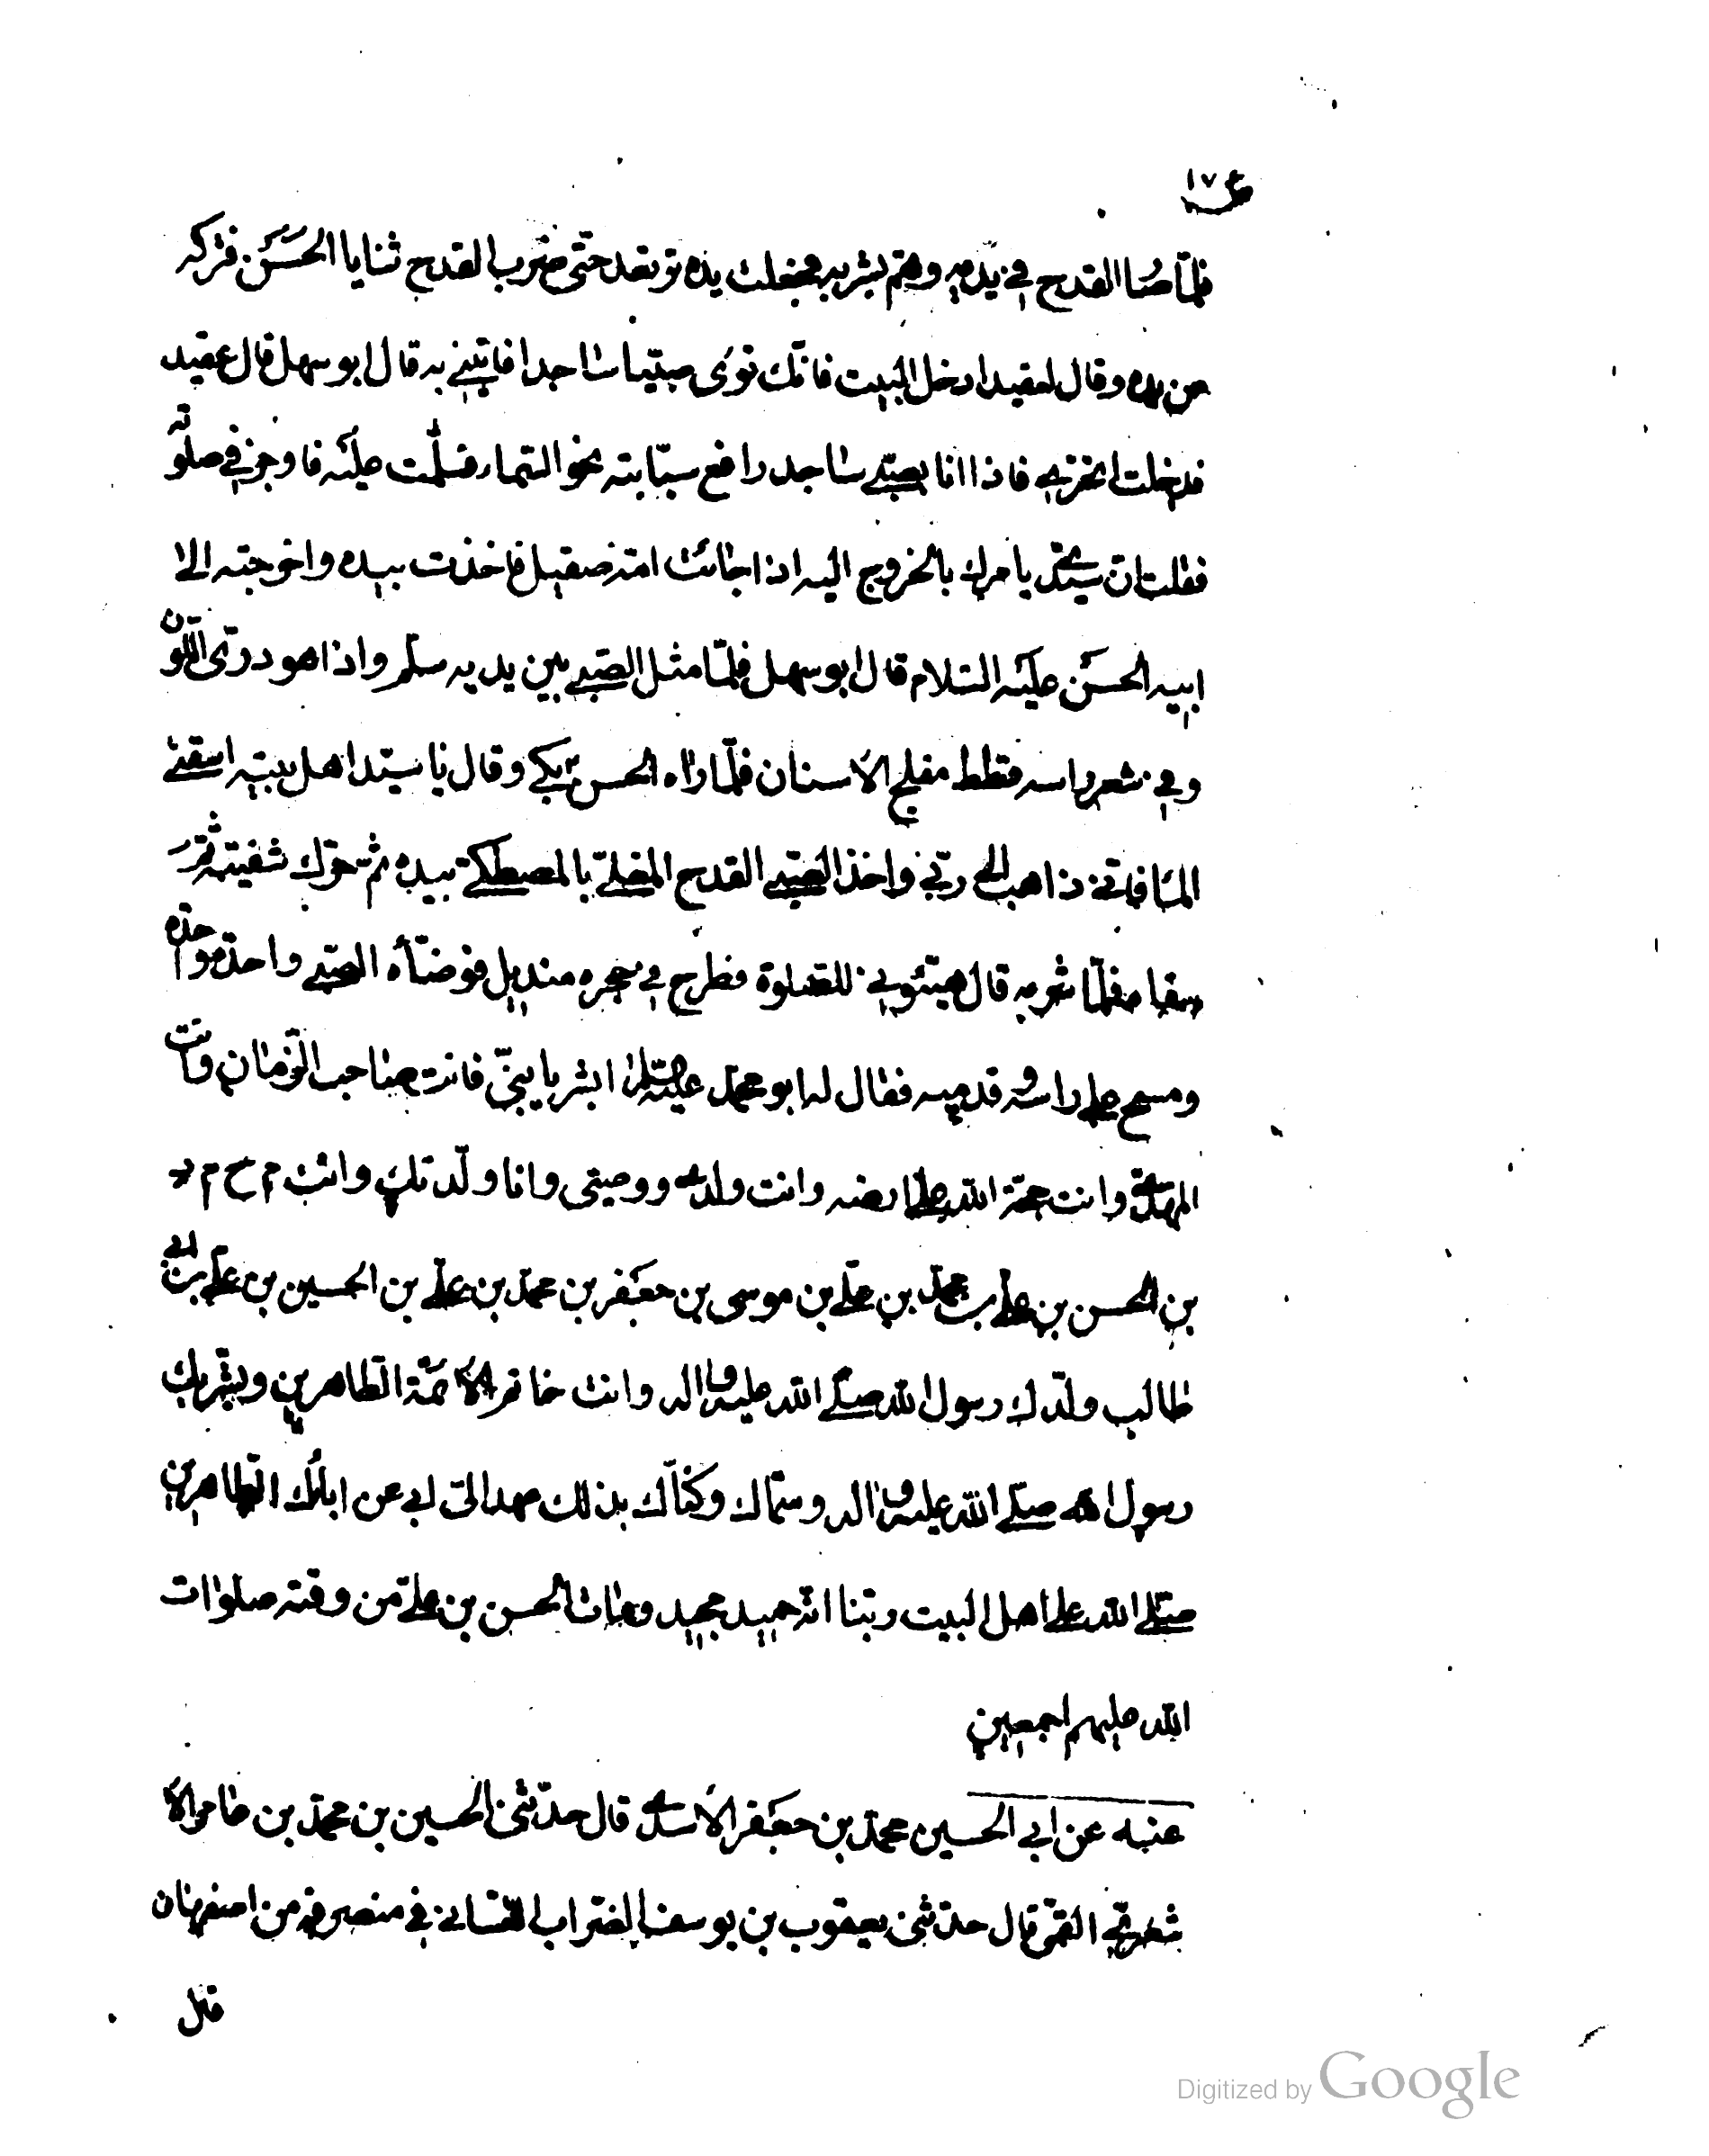 ١٧٤
فلمّا صٰا القدح في يديه وهمّ بشربه فجعلت يده ترتعد حتّى ضرب القدح ثنايا الحسَن فتركه
من يده وقال لعقيد ادخل البيت فانّك ترى صبيّا ساجدا فاتيني به قال ابو سهل قال عقيد
فدخلت اتحرّى فاذا انا بصبي ساجد رافع سبّابته نحو السّماء فسلّمت عليه فاوجز في صلوته
فقلت انّ سيّدي يامرك بالخروج اليه اذا جائت امّه صقيل فاخذت بيده واخرجته الى
ابيه الحسَن عليه السّلام قال ابو سهل فلمّا مثل الصّبي بين يديه سلّم واذا هو درّى اللّون
وفي شعر راسه قطط مفلج الاسنان فلمّا راٰه الحسن ع بكى وقال يا سيّد اهل بيته اسقني
الماء فانّي ذاهب الى ربّي واخذ الصّبي القدح المغلي بالمصطكي بيده ثمّ حرّك شفتيه ثمّ
سقاه فلمّا شربه قال هيّئوني للصّلوة فطرح في حجره منديل فوضّأه الصّبي واحدة واحدة
ومسح على راسه وقدميه فقال له ابو محمّد عليه السّلام ابشر يا بنيّ فانت صاحب الزّمان وانت
المهدي وانت حجّة الله على ارضه وانت ولدي ووصيّي وانا ولّدتك وانت م ح م د
بن الحسن بن علي بن محمّد بن علي بن موسى بن جعفر بن محمّد بن علي بن الحسين بن علي بن ابي
طالب ولّدك رسول الله صلّى الله عليه واله وانت خاتم الائمّة الطّاهرين وبشّر بك
رسول الله صلّى الله عليه واله وسمّاك وكنّاك بذلك عهد الىّ ابي عن ابائك الطّاهرين
صلّى الله على اهل البيت ربّنا انّه حميد مجيد ومات الحسن بن علي من وقته صلوات
الله عليهم اجمعين
عنه عن ابي الحسين محمّد بن جعفر الاسدي قال حدّثني الحسين بن محمّد بن عامر الا
شعري القمّي قال حدّثني يعقوب بن يوسف الضّراب الغسّاني في منصرفه من اصفهان
قال
Digitized by Google